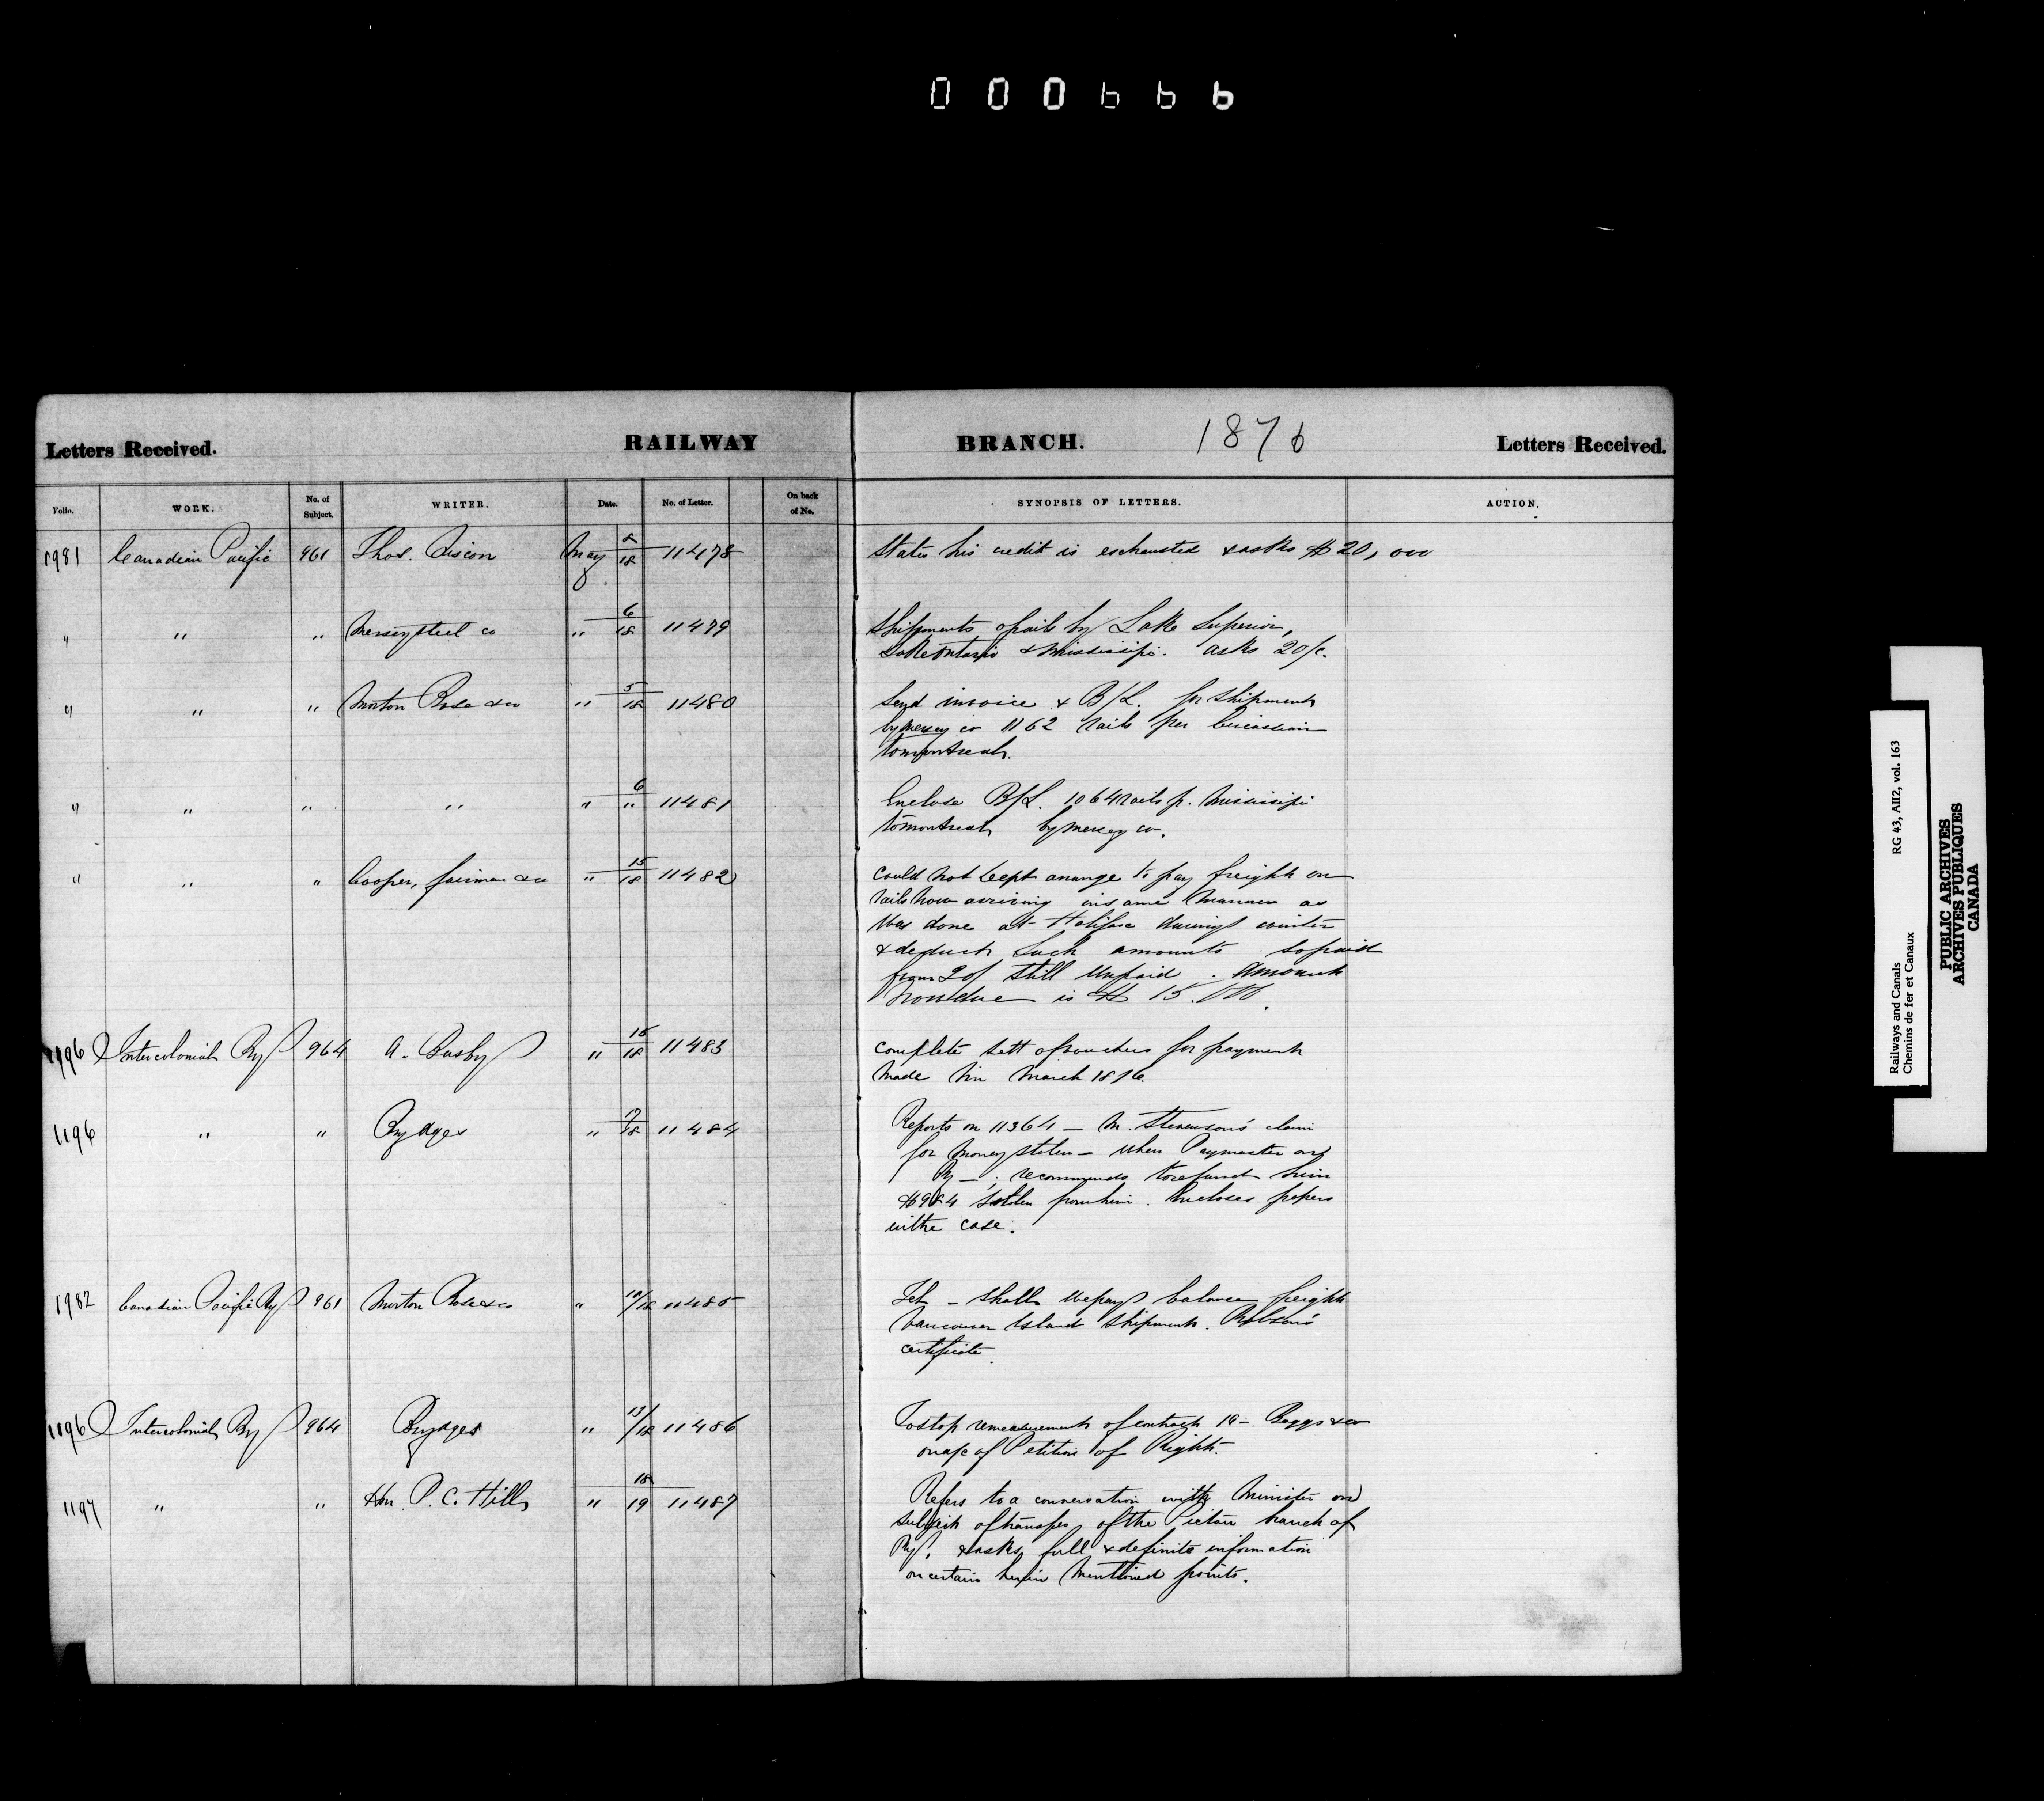 000666
Letters Received. RAILWAY BRANCH. 1876 Letters Received.
Folio. WORK. No. of Subject. WRITER. Date. No. of Letter. On back of No. SYNOPSIS OF LETTERS. ACTION.
1981 Canadian Pacific 961 Thos. May 2/18 11478 States his credit is exhausted & asks $20,000
" " " Mersey steel co " 6/18 11479 Shipments of rails by Lake Superior,
Lake Ontario & Mississipi. asks 20/c.
" " " Morton Rose & co " 5/18 11480 Send invoice & B/L. for shipment
by Mersey co 1162 rails per Circassian
to montreal.
" " " " " 6/" 11481 Enclose B/L. 1064 rails p. Mississipi
to montreal by Mersey co.
" " " Cooper, fairman & co " 15/18 11482 Could not Dept arrange to pay freight on
rails now arriving in same manner as
was done at Halifax during winter
& deduct such amounts so paid
from still unpaid. Amount
now due is $ 15.000.
1196 Intercolonial Ry 964 A. Busby " 15/18 11483 Complete sett of vouchers for payment
made in March 1876.
1196 " " Brydges " 17/18 11484 Reports on 11364 – M. Stevenson's claim
for money stolen – when Paymaster on
Ry – ; recommends to refund him
$984 stolen from him. Encloses papers
in the case.
1982 Canadian Pacific Ry 961 Morton Rose & co " 18/18 11485 Tel – Shall we pay balance freight
Vancouver Island shipment. Robson's
certificate.
1196 Intercolonial Ry 964 Brydges " 13/18 11486 To stop remeasurement of contract 19 – Boggs & co
on a/c of Petition of Right.
1197 " " Hon. P. C. Hill " 18/19 11487 Refers to a conversation with Minister on
subject of transfer of the Pictou branch of
Ry, & asks full & definite information
on certain herein mentioned points.
Railways and Canals RG 43, AII2, vol. 163
Chemins de fer et Canaux
PUBLIC ARCHIVES
ARCHIVES PUBLIQUES
CANADA